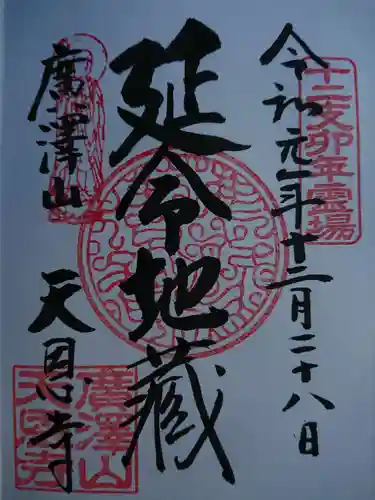 令和元年十二月二十八日
十二支卯年霊場
延命地蔵
廣澤山
天恩寺
廣澤山
天恩寺